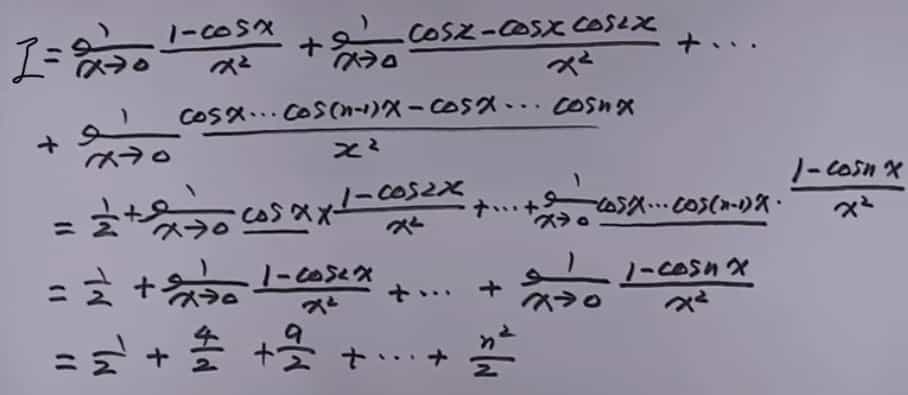 I = lim x→0 (1-cosx)/x² + lim x→0 (cosx-cosx cos2x)/x² + ...
+ lim x→0 (cosx... cos(n-1)x - cosx... cosnx)/x²
= 1/2 + lim x→0 cosx × (1-cos2x)/x² + ... + lim x→0 cosx... cos(n-1)x · (1-cosnx)/x²
= 1/2 + lim x→0 (1-cos2x)/x² + ... + lim x→0 (1-cosnx)/x²
= 1/2 + 4/2 + 9/2 + ... + n²/2